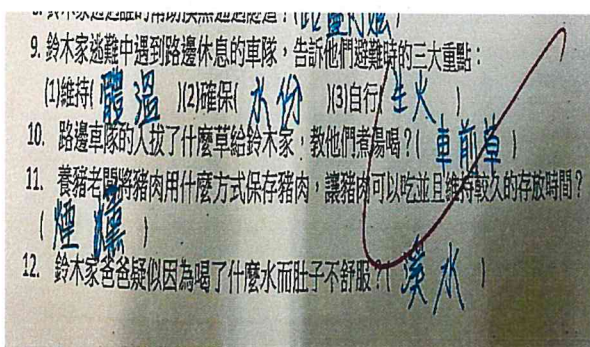 8. 鈴木家透過誰的幫助摸黑通過隧道？(比盲阿嬤)
9. 鈴木家逃難中遇到路邊休息的車隊，告訴他們避難時的三大重點：
(1)維持( 體溫 )(2)確保( 水份 )(3)自行( 生火 )
10. 路邊車隊的人拔了什麼草給鈴木家，教他們煮湯喝？( 車前草 )
11. 養豬老闆將豬肉用什麼方式保存豬肉，讓豬肉可以吃並且維持較久的存放時間？
( 煙燻 )
12. 鈴木家爸爸疑似因為喝了什麼水而肚子不舒服？( 溪水 )